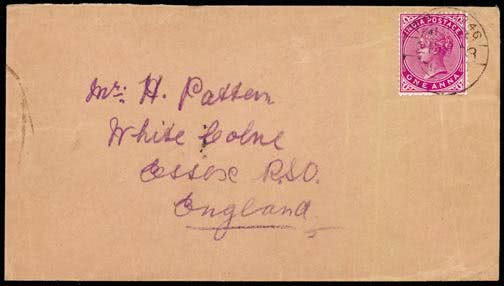 INDIA POSTAGE
ONE ANNA
Mr: H. Pattern
White Colne
Essex R.S.O.
England